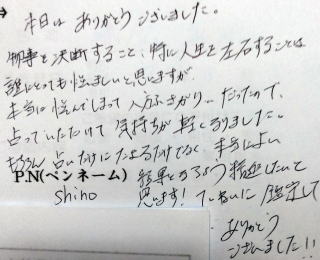 本日は ありがとうございました。
物事を決断すること、特に人生を左右することは
誰にとっても悩ましいと思いますが、
本当に悩んでしまって 八方ふさがり…だったので、
占っていただけて 気持ちが 軽くなりました。
もちろん 占いだけにたよるだけでなく 本当によい
P.N(ペンネーム) 結果となるよう 精進したいと
shino 思います! ていねいに 鑑定して
ありがとう
ございました!!